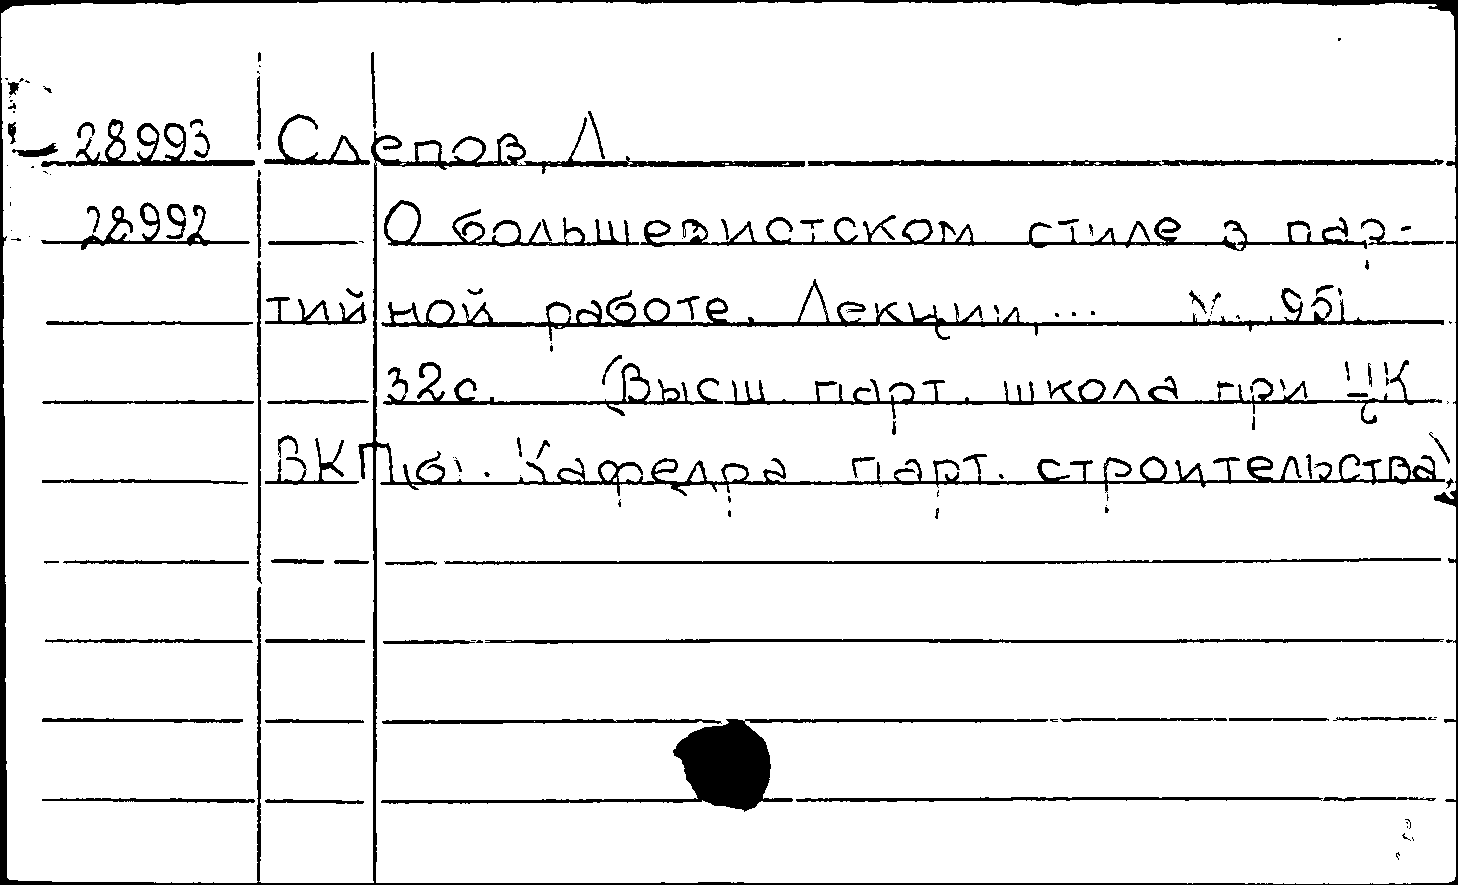 28993 Слепов, Л.
28992 О большевистском стиле в пар-
тийной работе. Лекции, ... М., 951.
32 с. (Высш. парт. школа при ЦК
ВКП(б). Кафедра парт. строительства).